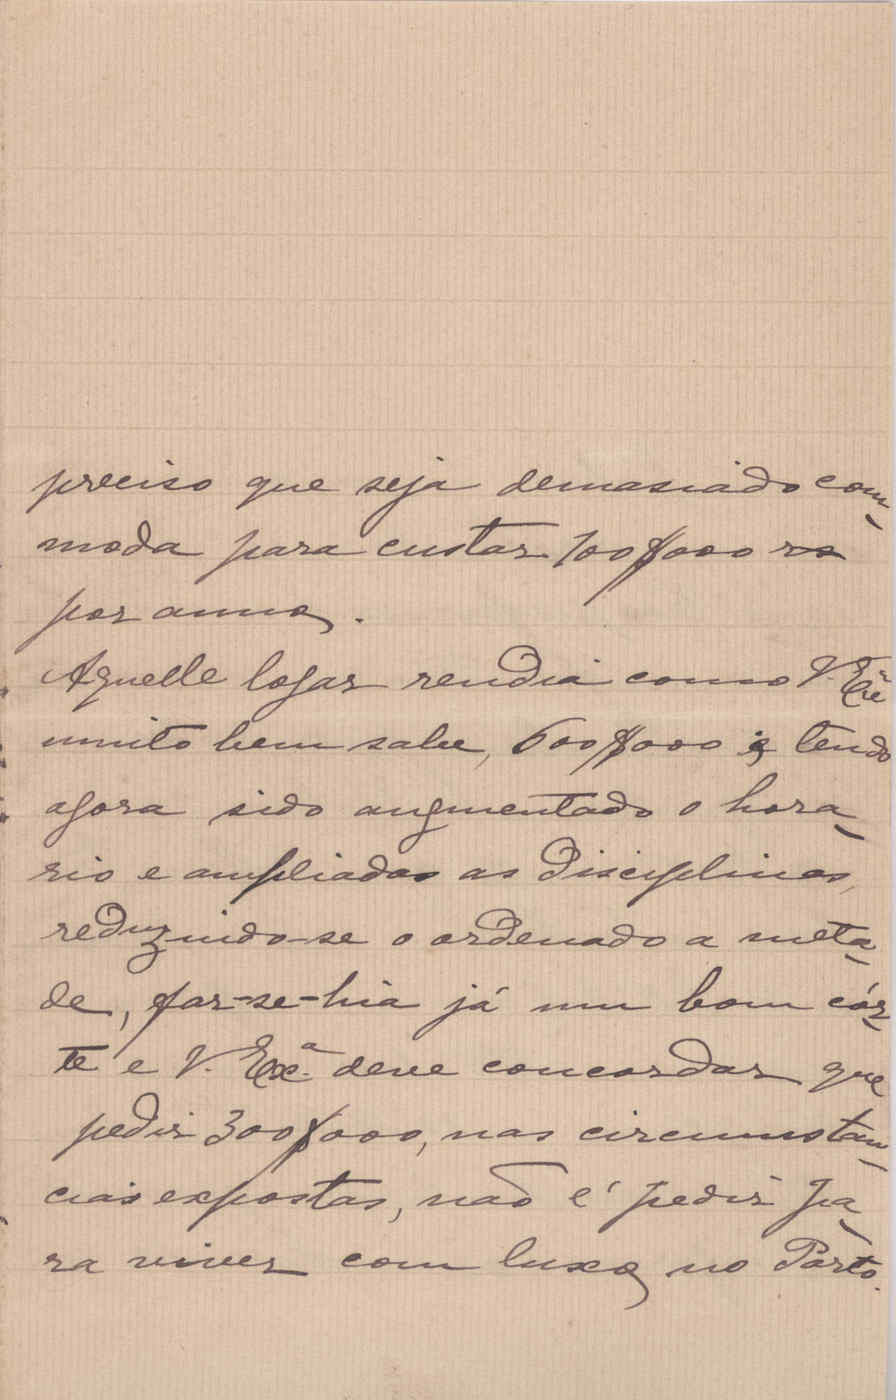 preciso que seja demasiado com-
moda para custar 100$000 rs
por anno.
Aquelle logar rendia como V. Exª
muito bem sabe, 600$000 e tendo
agora sido augmentado o hora-
rio e ampliadas as disciplinas,
reduzindo-se o ordenado a meta-
de, far-se-hia já um bom cór-
te e V. Exª deve concordar que
pedir 300$000, nas circumstan-
cias expostas, não é pedir pa-
ra viver com luxo no Porto.